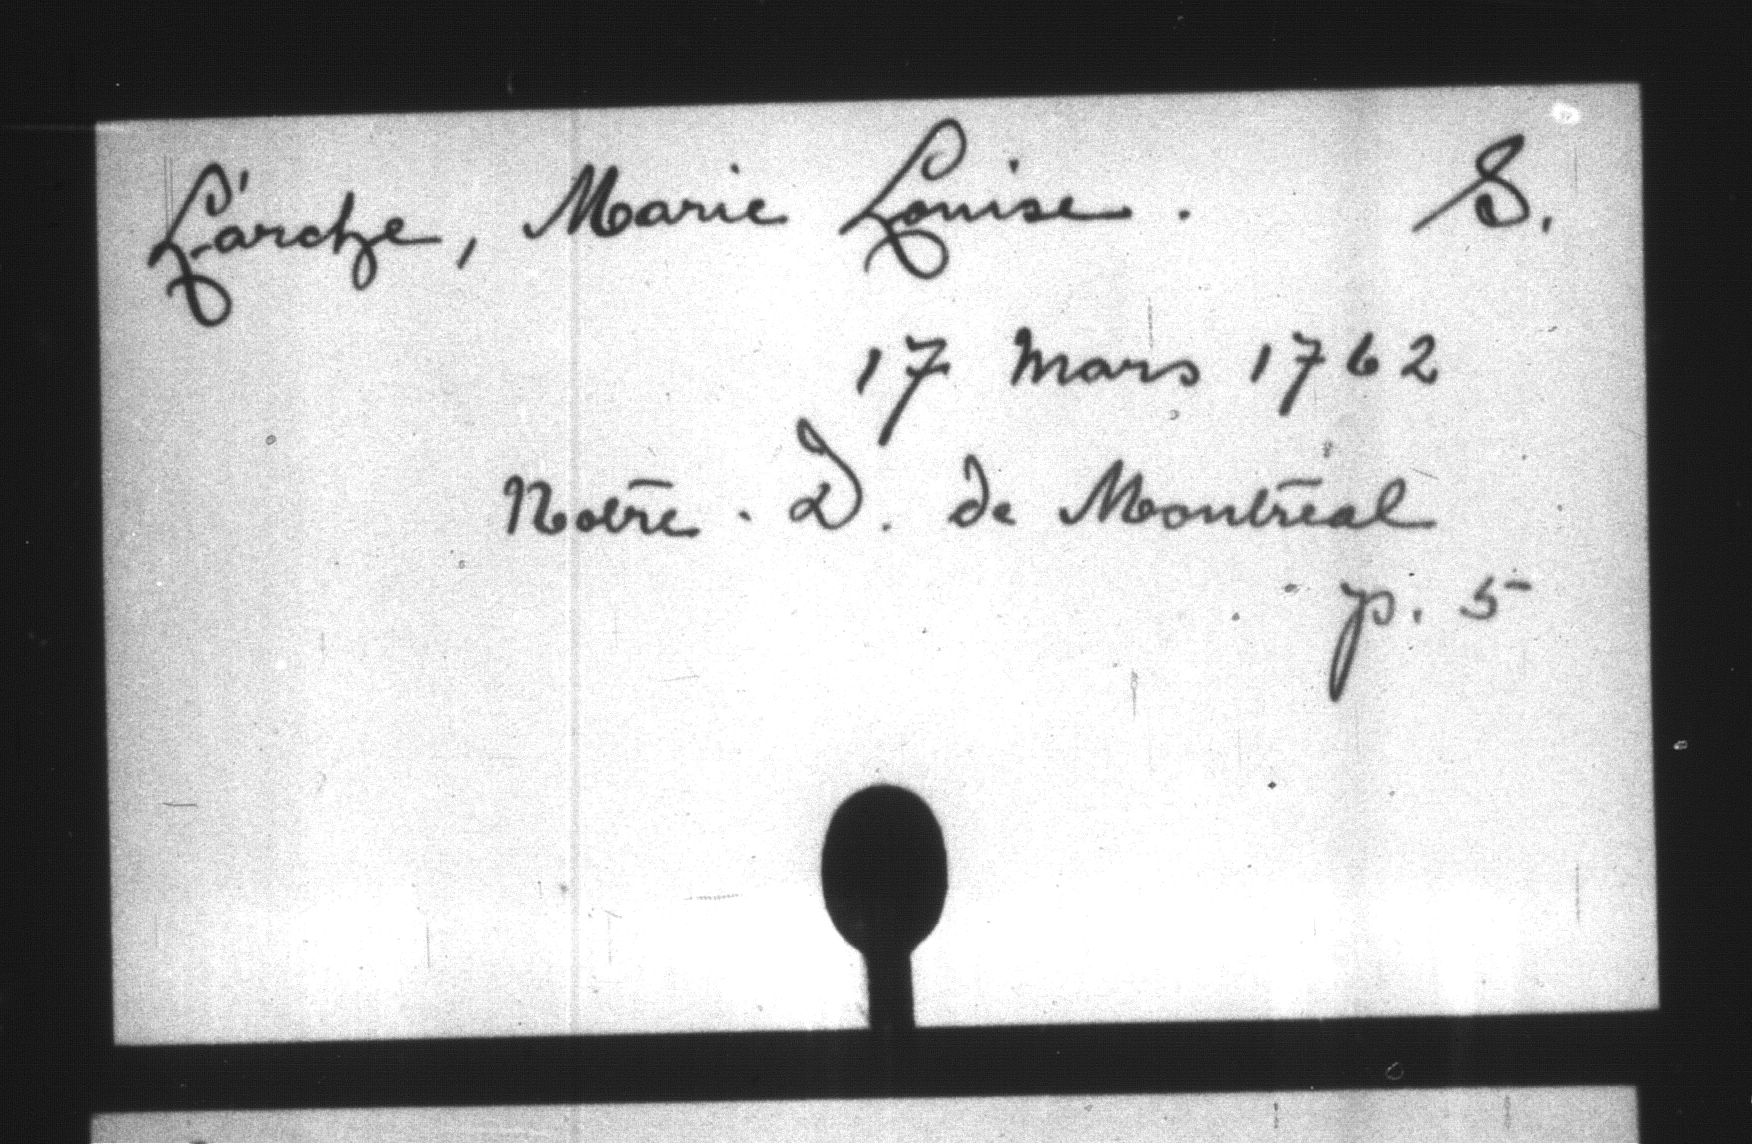 L'archze, Marie Louise. S.
17 mars 1762
Notre. D. de Montréal
p. 5